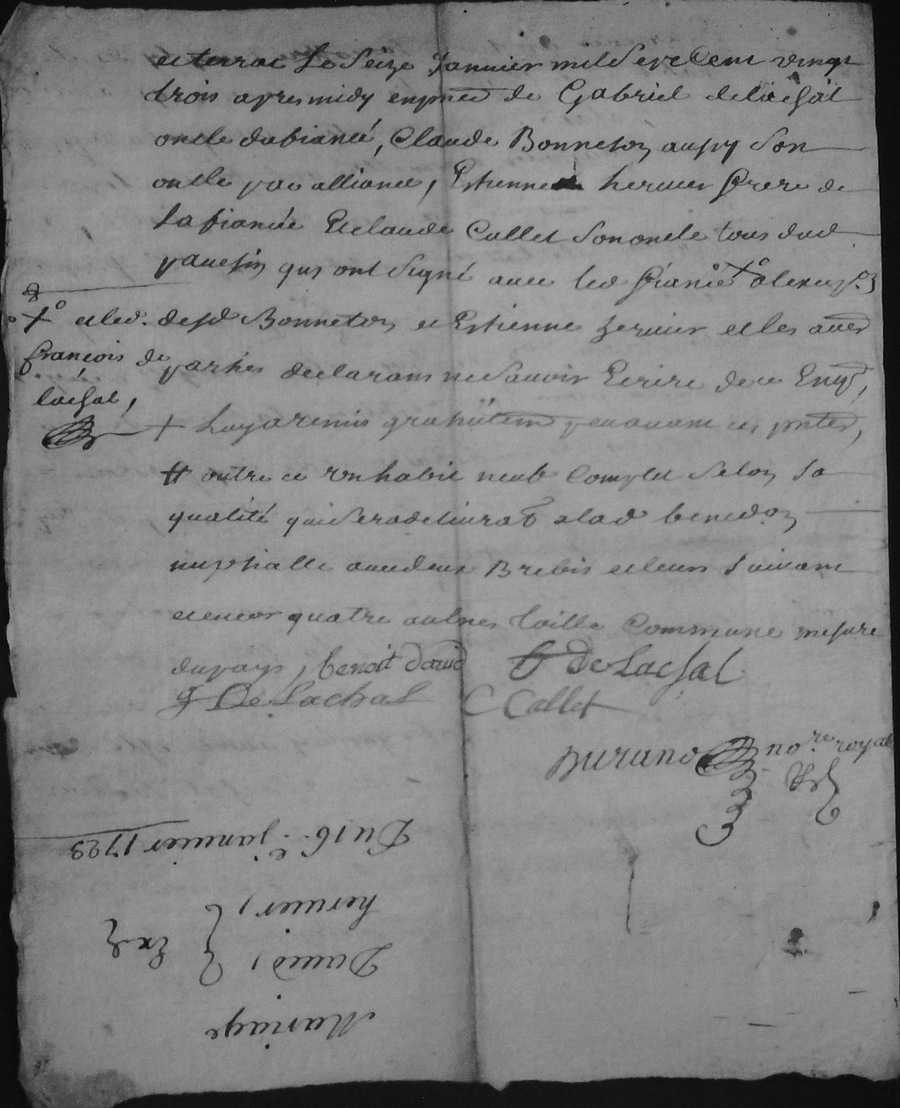 et terrac Le Seize Janvier mil Sept Cent vingt
trois apres midy en pnce de Gabriel delachal
oncle du fiancé, Claude Bonneton aussy Son
oncle par alliance, Estienne hervier frere de
La fiancée Et claude Collet Son oncle tous dud
qui ont Signé avec led fiancé
et led. Bonneton et Estienne hervier et les autres
parties declarans ne Savoir Ecrire de ce Enqs,
françois de
lachal,
+ Loyaremis gratuitem ces pntes,
# outre ce un habit neuf Complet Selon Sa
qualité qui Sera delivré a lad benedon
nuptialle avec deux Brebis et leurs Suivant
et encor quatre aulnes toille Commune mesure
du pays, benoit david G De Lachal
f De Lachal C Collet
Durano no.re royal
Du 16.e janvier 1723
hervier,
David,
Exp
Mariage